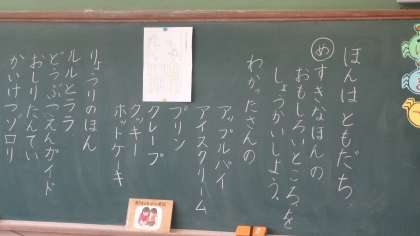 ほんはともだち
め すきなほんの
おもしろいところを
しょうかいしよう。
わかったさんの
アップルパイ
アイスクリーム
プリン
クレープ
クッキー
ホットケーキ
りょうりのほん
ルルとララ
どうぶつえんガイド
おしりたんてい
かいけつゾロリ